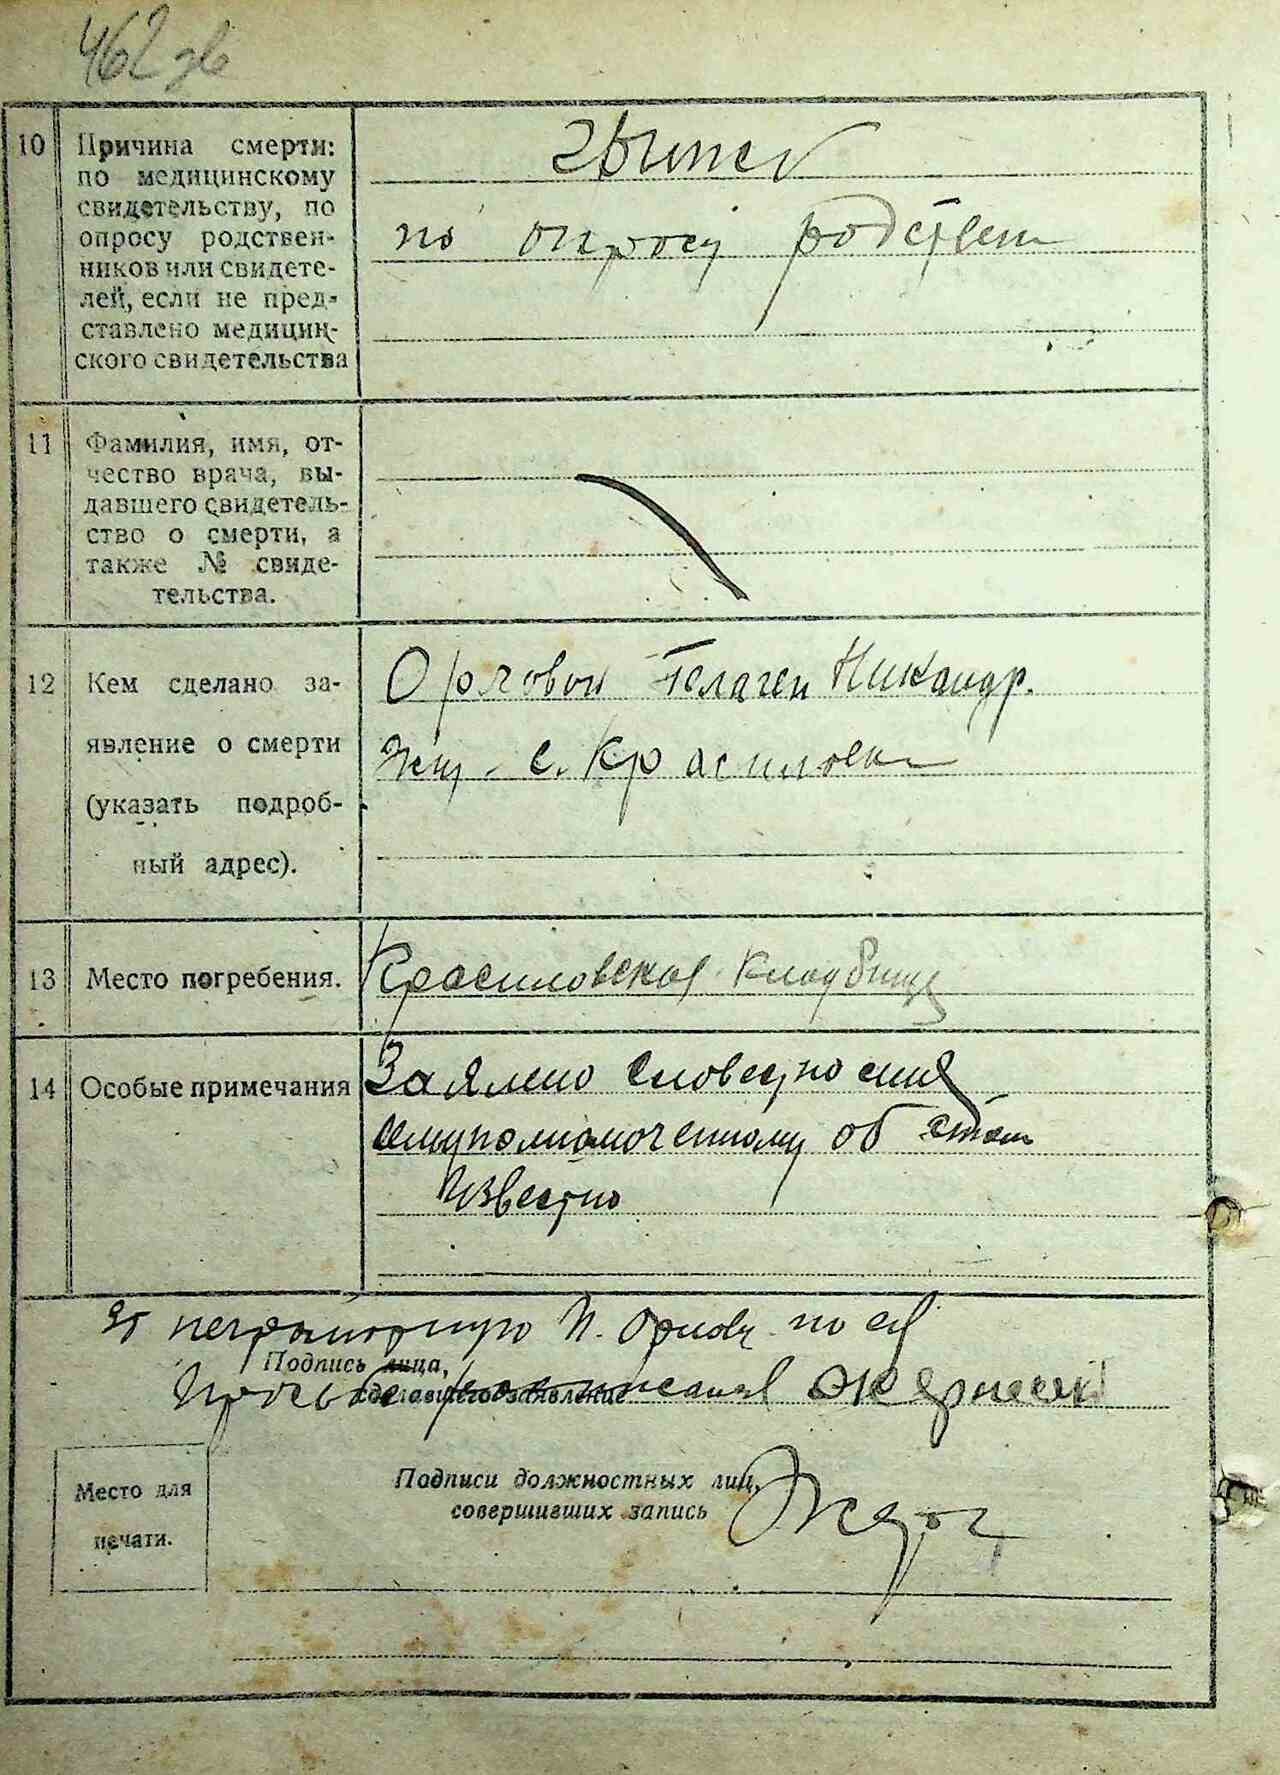 462 зв
10 Причина смерти:
по медицинскому
свидетельству, по
опросу родствен-
ников или свидете-
лей, если не пред-
ставлено медицин-
ского свидетельства
по опросу родствен
11 Фамилия, имя, от-
чество врача, вы-
давшего свидетель-
ство о смерти, а
также № свиде-
тельства.
12 Кем сделано за-
явление о смерти
(указать подроб-
ный адрес).
Орловой Пелагеи Никандр.
с. Красиловки
13 Место погребения.
Красиловская кладбище
14 Особые примечания
Заялено словестно
об етом
Известно
За неграмотную П. Орлову по ея
Подпись лица,
сделавшего заявление
Просьбе росписался
Подписи должностных лиц,
совершивших запись
Место для
печати.